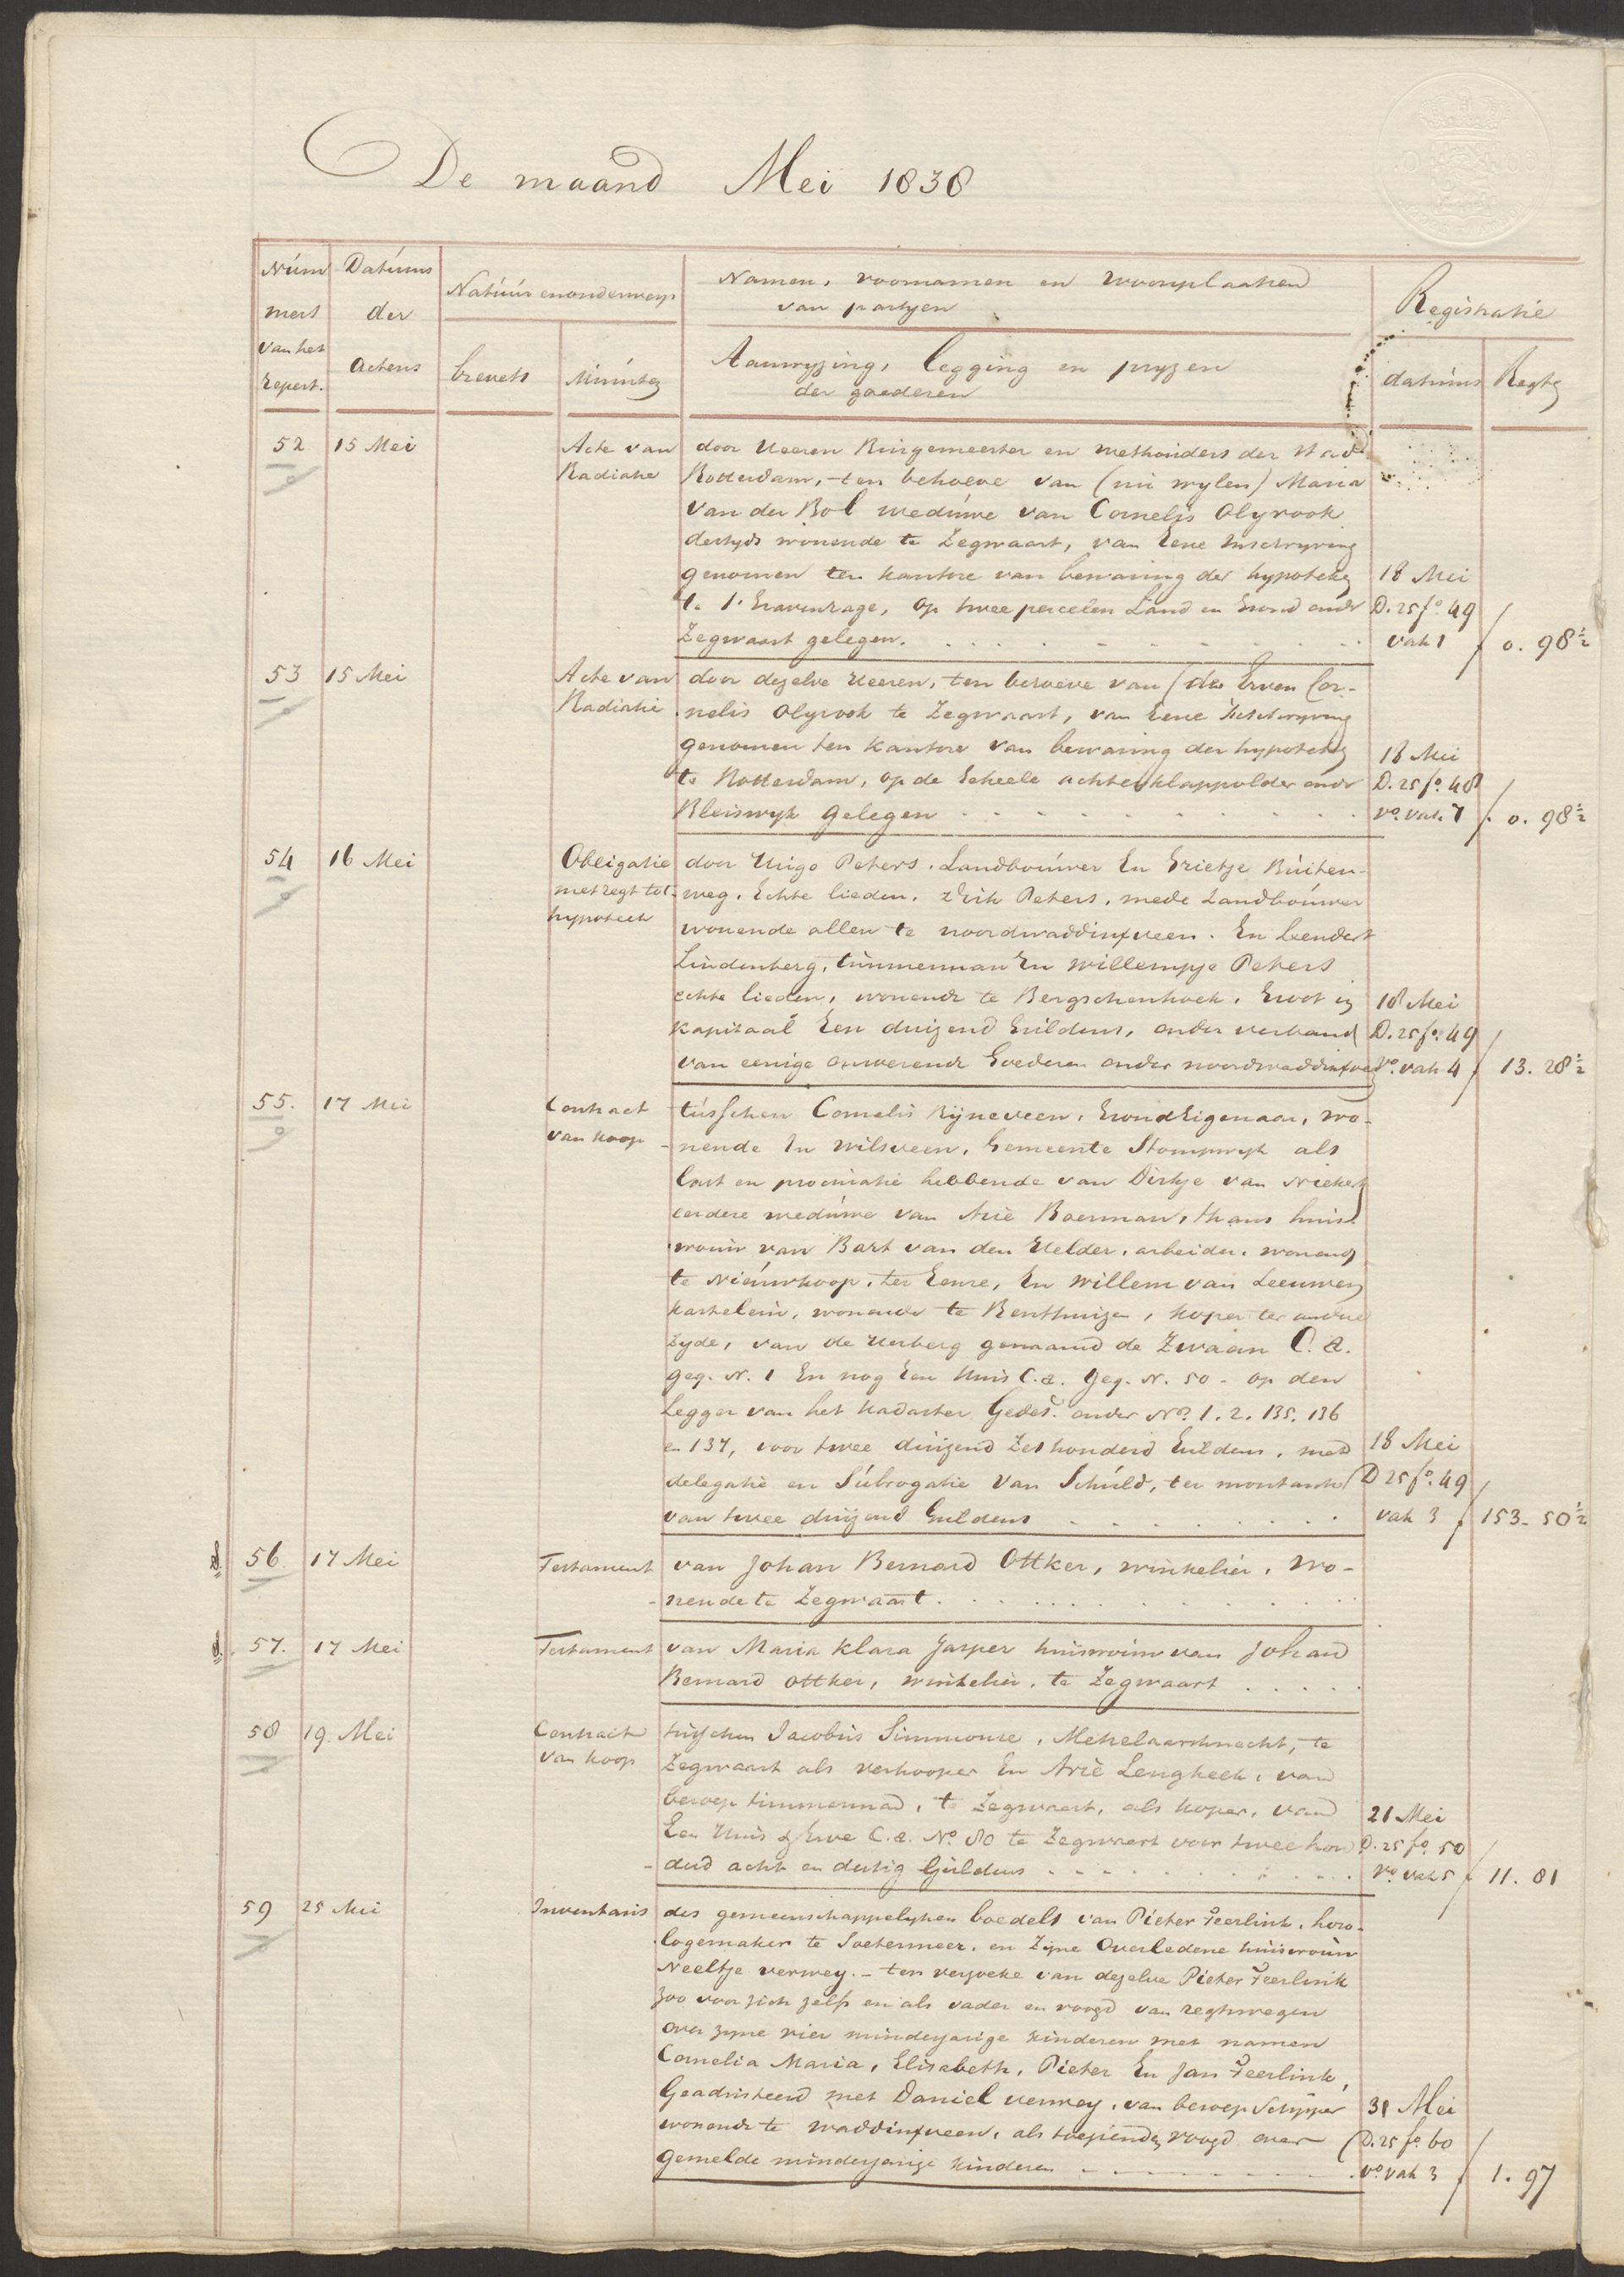 De maand Mei 1838
Núm Datúms
mers der
van het
repert. Actens
Natúúr en onderwerp
brevets Minúten
Namen, voornamen en woonplaatsen
van partyen
Aanwyzing, legging en pryzen
der goederen
Registratie
datúms Regten
52 15 Mei Acte van
Radiatie
door Heeren Búrgemeester en wethouders der Stad
Rotterdam, ten behoeve van (nú wylen) Maria
van der Bol wedúwe van Cornelis Olyrook
destyds wonende te Zegwaart, van Eene Inschryving
genomen ten kantore van bewaring der hypoteken
te 's Gravenhage, op twee perceelen Land en Grond onder
Zegwaart gelegen.
18 Mei
D. 25 fo. 49
vak 1 f 0. 98½
53 15 Mei Acte van
Radiatie
door dezelve Heeren, ten behoeve van (de Erven Cor-
nelis Olyrook te Zegwaart, van Eene Inschryving
genomen ten kantore van bewaring der hypoteken
te Rotterdam, op de Geheele achterklappolder onder
Bleiswyk gelegen
18 Mei
D. 25 fo. 48
vo. vak. 7 f. 0. 98½
54 16 Mei Obligatie
met regt tot
hypoteek
door Húgo Peters, Landboúwer En Grietje Búiten-
weg, Echte lieden, Dirk Peters, mede Landboúwer
wonende allen te noordwaddinxveen. En Leendert
Lindenberg, timmerman En Willempje Peters
echte lieden, wonende te Bergschenhoek, Groot in
kapitaal Een duizend Guldens, onder verband
van eenige onroerende Goederen onder noordwaddinxveen
18 Mei
D. 25 fo. 49
Vo. vak 4 f 13. 28½
55. 17 Mei Contract
van koop
tússchen Cornelis Rijneveen, GrondEigenaar, wo-
nende In Wilsveen, Gemeente Stompwyk als
last en procúratie hebbende van Dirkje van Niekerk
eerdere wedúwe van Arie Boerman, thans húis-
vroúw van Bart van den Helder, arbeider, wonende
te Nieúwkoop, ter Eenre, En Willem van Leeuwen
kastelein, wonende te Benthuizen, koper ter andere
zyde, van de Herberg genaamd de Zwaan C. a.
geq. N. 1 En nog Een Huis C. a. geq. N. 50 - op den
Legger van het kadaster Gedes. onder No. 1. 2. 135. 136
en 137, voor twee duizend Zes honderd Guldens, met
delegatie en Súbrogatie van Schúld, ter montant
van twee duizend Guldens
18 Mei
D 25 fo. 49
vak 3 f 153. 50½
56. 17 Mei Testament
van Johan Bernard Ottker, winkelier, wo-
nende te Zegwaart.
57. 17 Mei Testament
van Maria Klara Jasper huisvroúw van Johan
Bernard Ottker, winkelier, te Zegwaart
58 19. Mei Contract
van koop
túschen Jacobús Simmonse, Metselaarsknecht, te
Zegwaart als verkooper En Arie Lengkeek, van
beroep timmerman, te Zegwaart, als koper, van
Een Huis & Erve C. a. No. 80 te Zegwaart voor twee hon
derd acht en dertig Guldens
21 Mei
D. 25 fo. 50
vo vak 5 f 11. 81
59 25 Mei Inventaris
des gemeenschappelyken boedels van Pieter Feerlink, horo-
logemaker te Soetermeer, en Zyne Overledene húisvroúw
Neeltje verwey. - ten verzoeke van dezelve Pieter Feerlink
zoo voor zich zelfs en als vader en voogd van regtswegen
over zyne vier minderjarige kinderen met namen
Cornelia Maria, Elisabeth, Pieter En Jan Feerlink,
Geadsisteerd met Daniel verwey, van beroep Schipper
wonende te Waddinxveen, als toeziende voogd over
gemelde minderjarige kinderen
31 Mei
D. 25 fo. 60
vo vak 3 f 1. 97